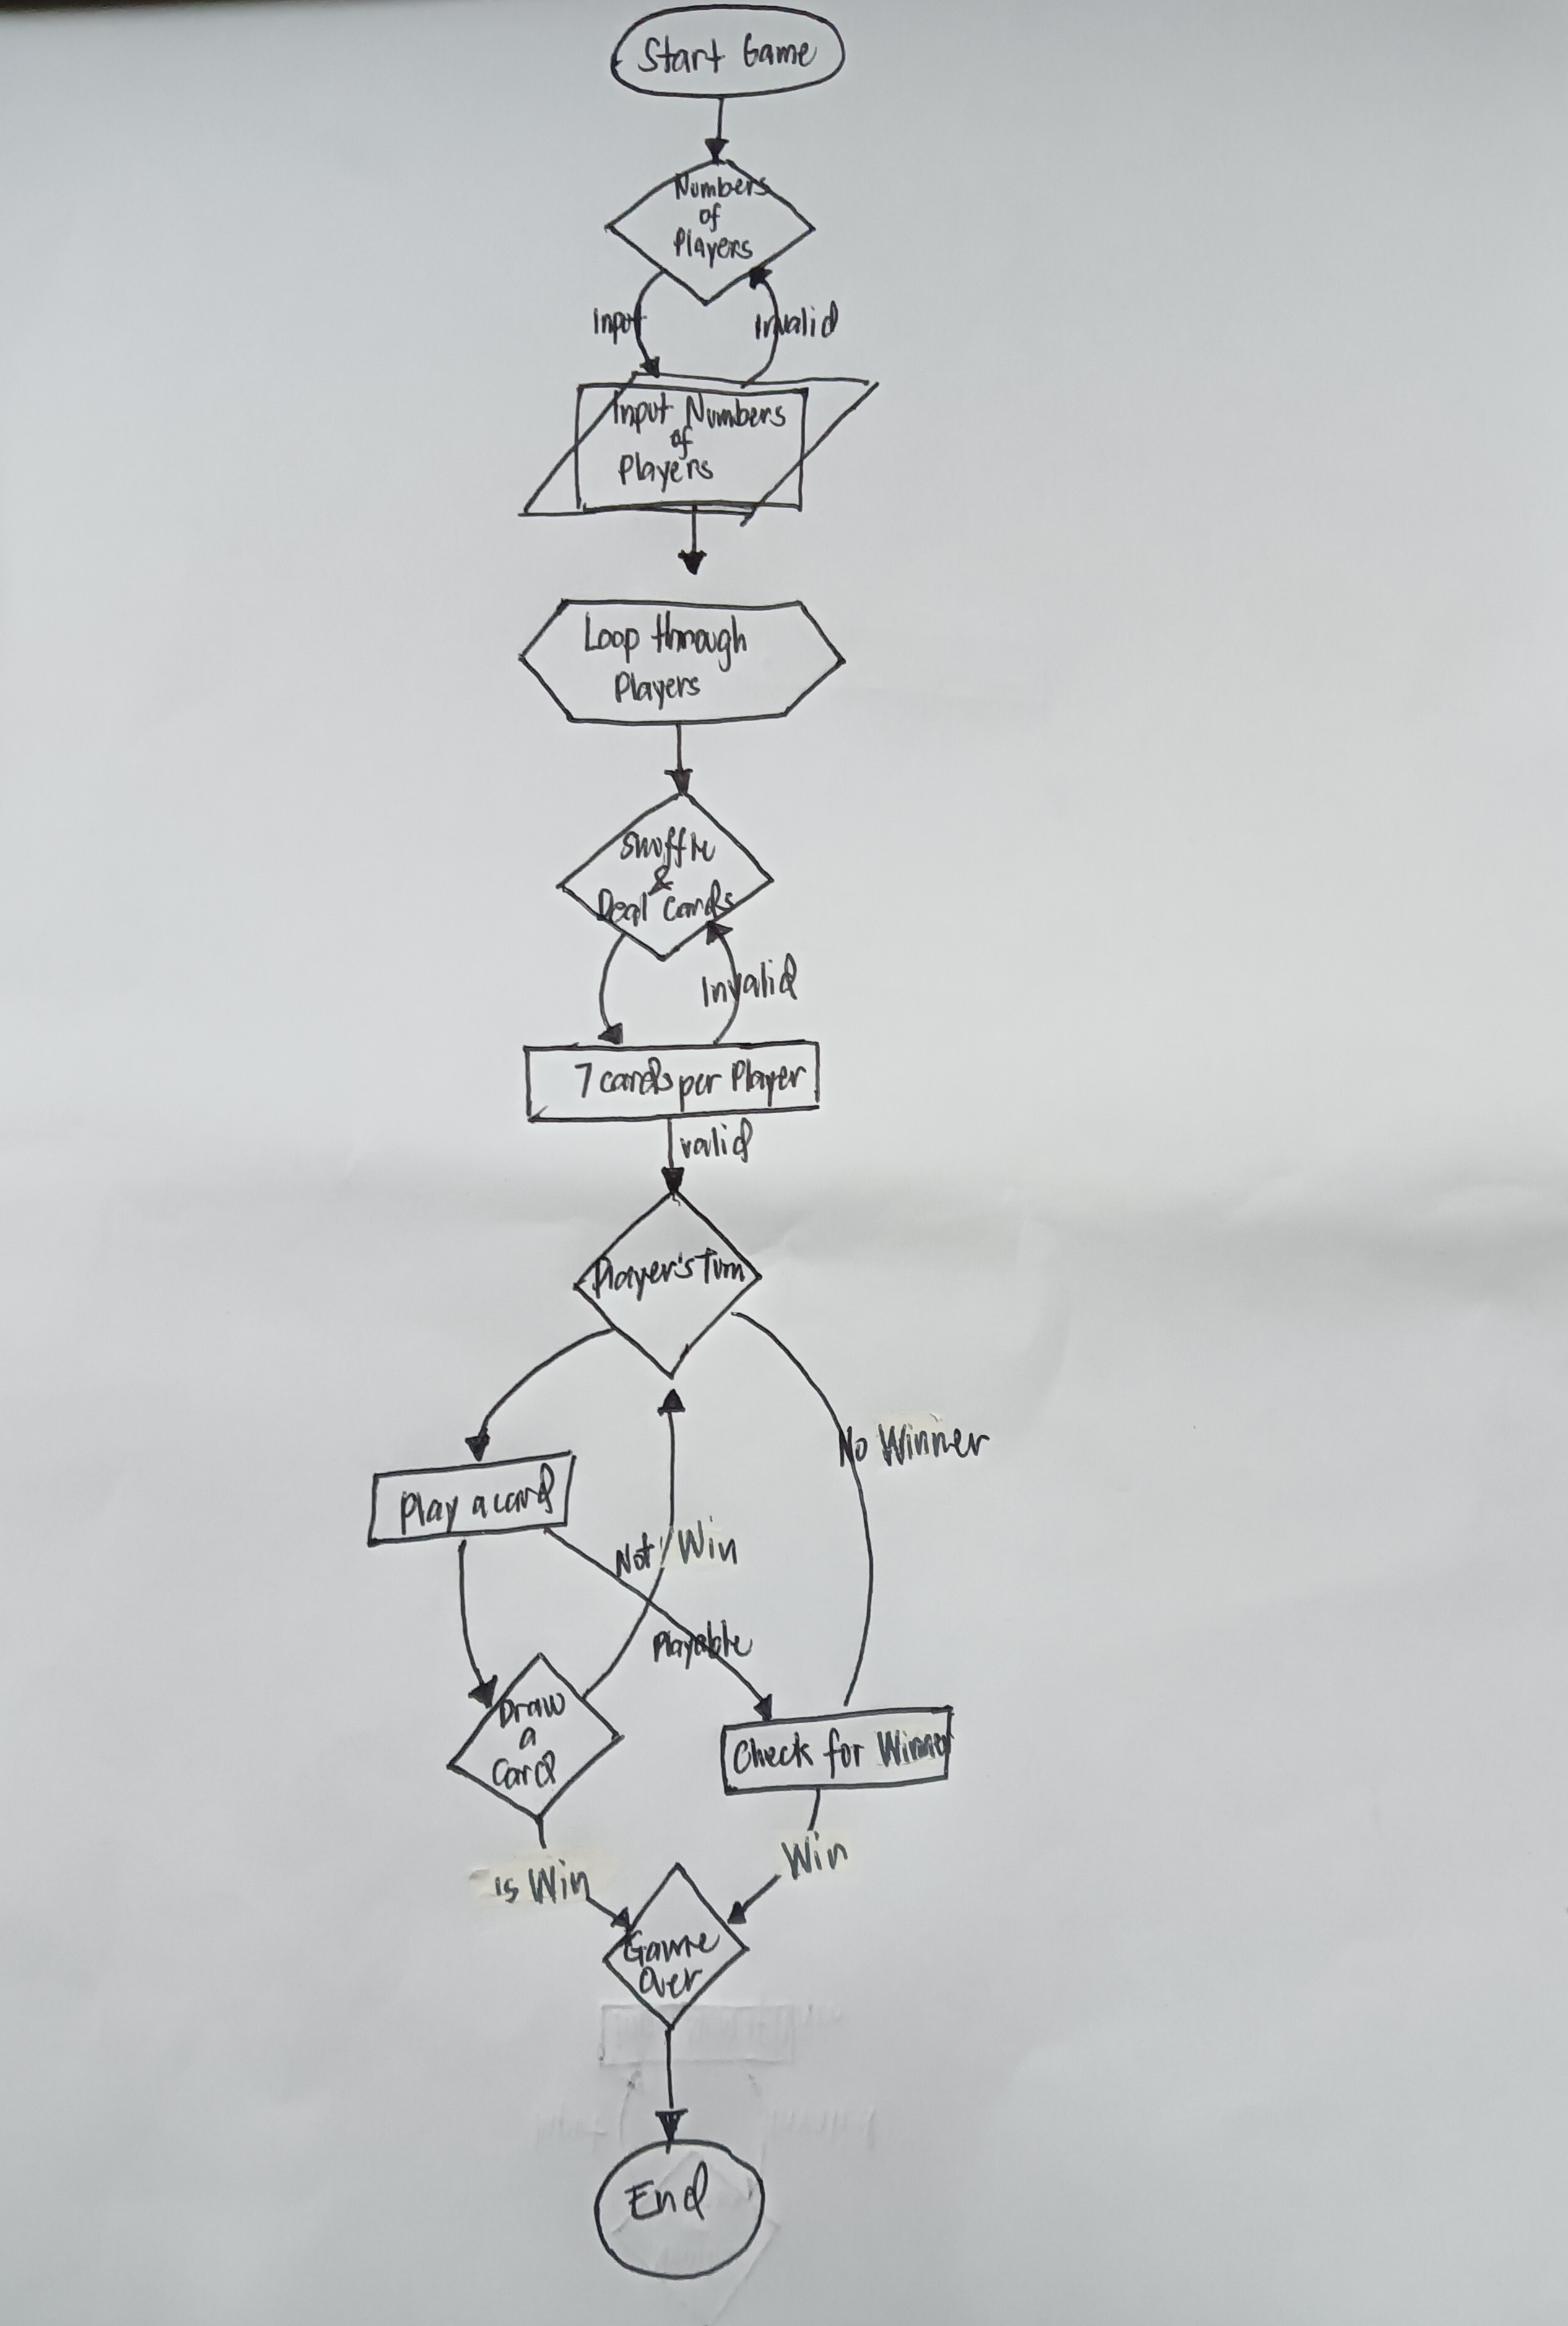 Start Game
Numbers
of
Players
Input
Invalid
Input Numbers
of
Players
Loop through
Players
Shuffle
&
Deal Cards
Invalid
7 cards per Player
valid
Player's Turn
No Winner
Play a card
Not Win
Playable
Draw
a
Card
Check for Winner
is Win
Win
Game
Over
End